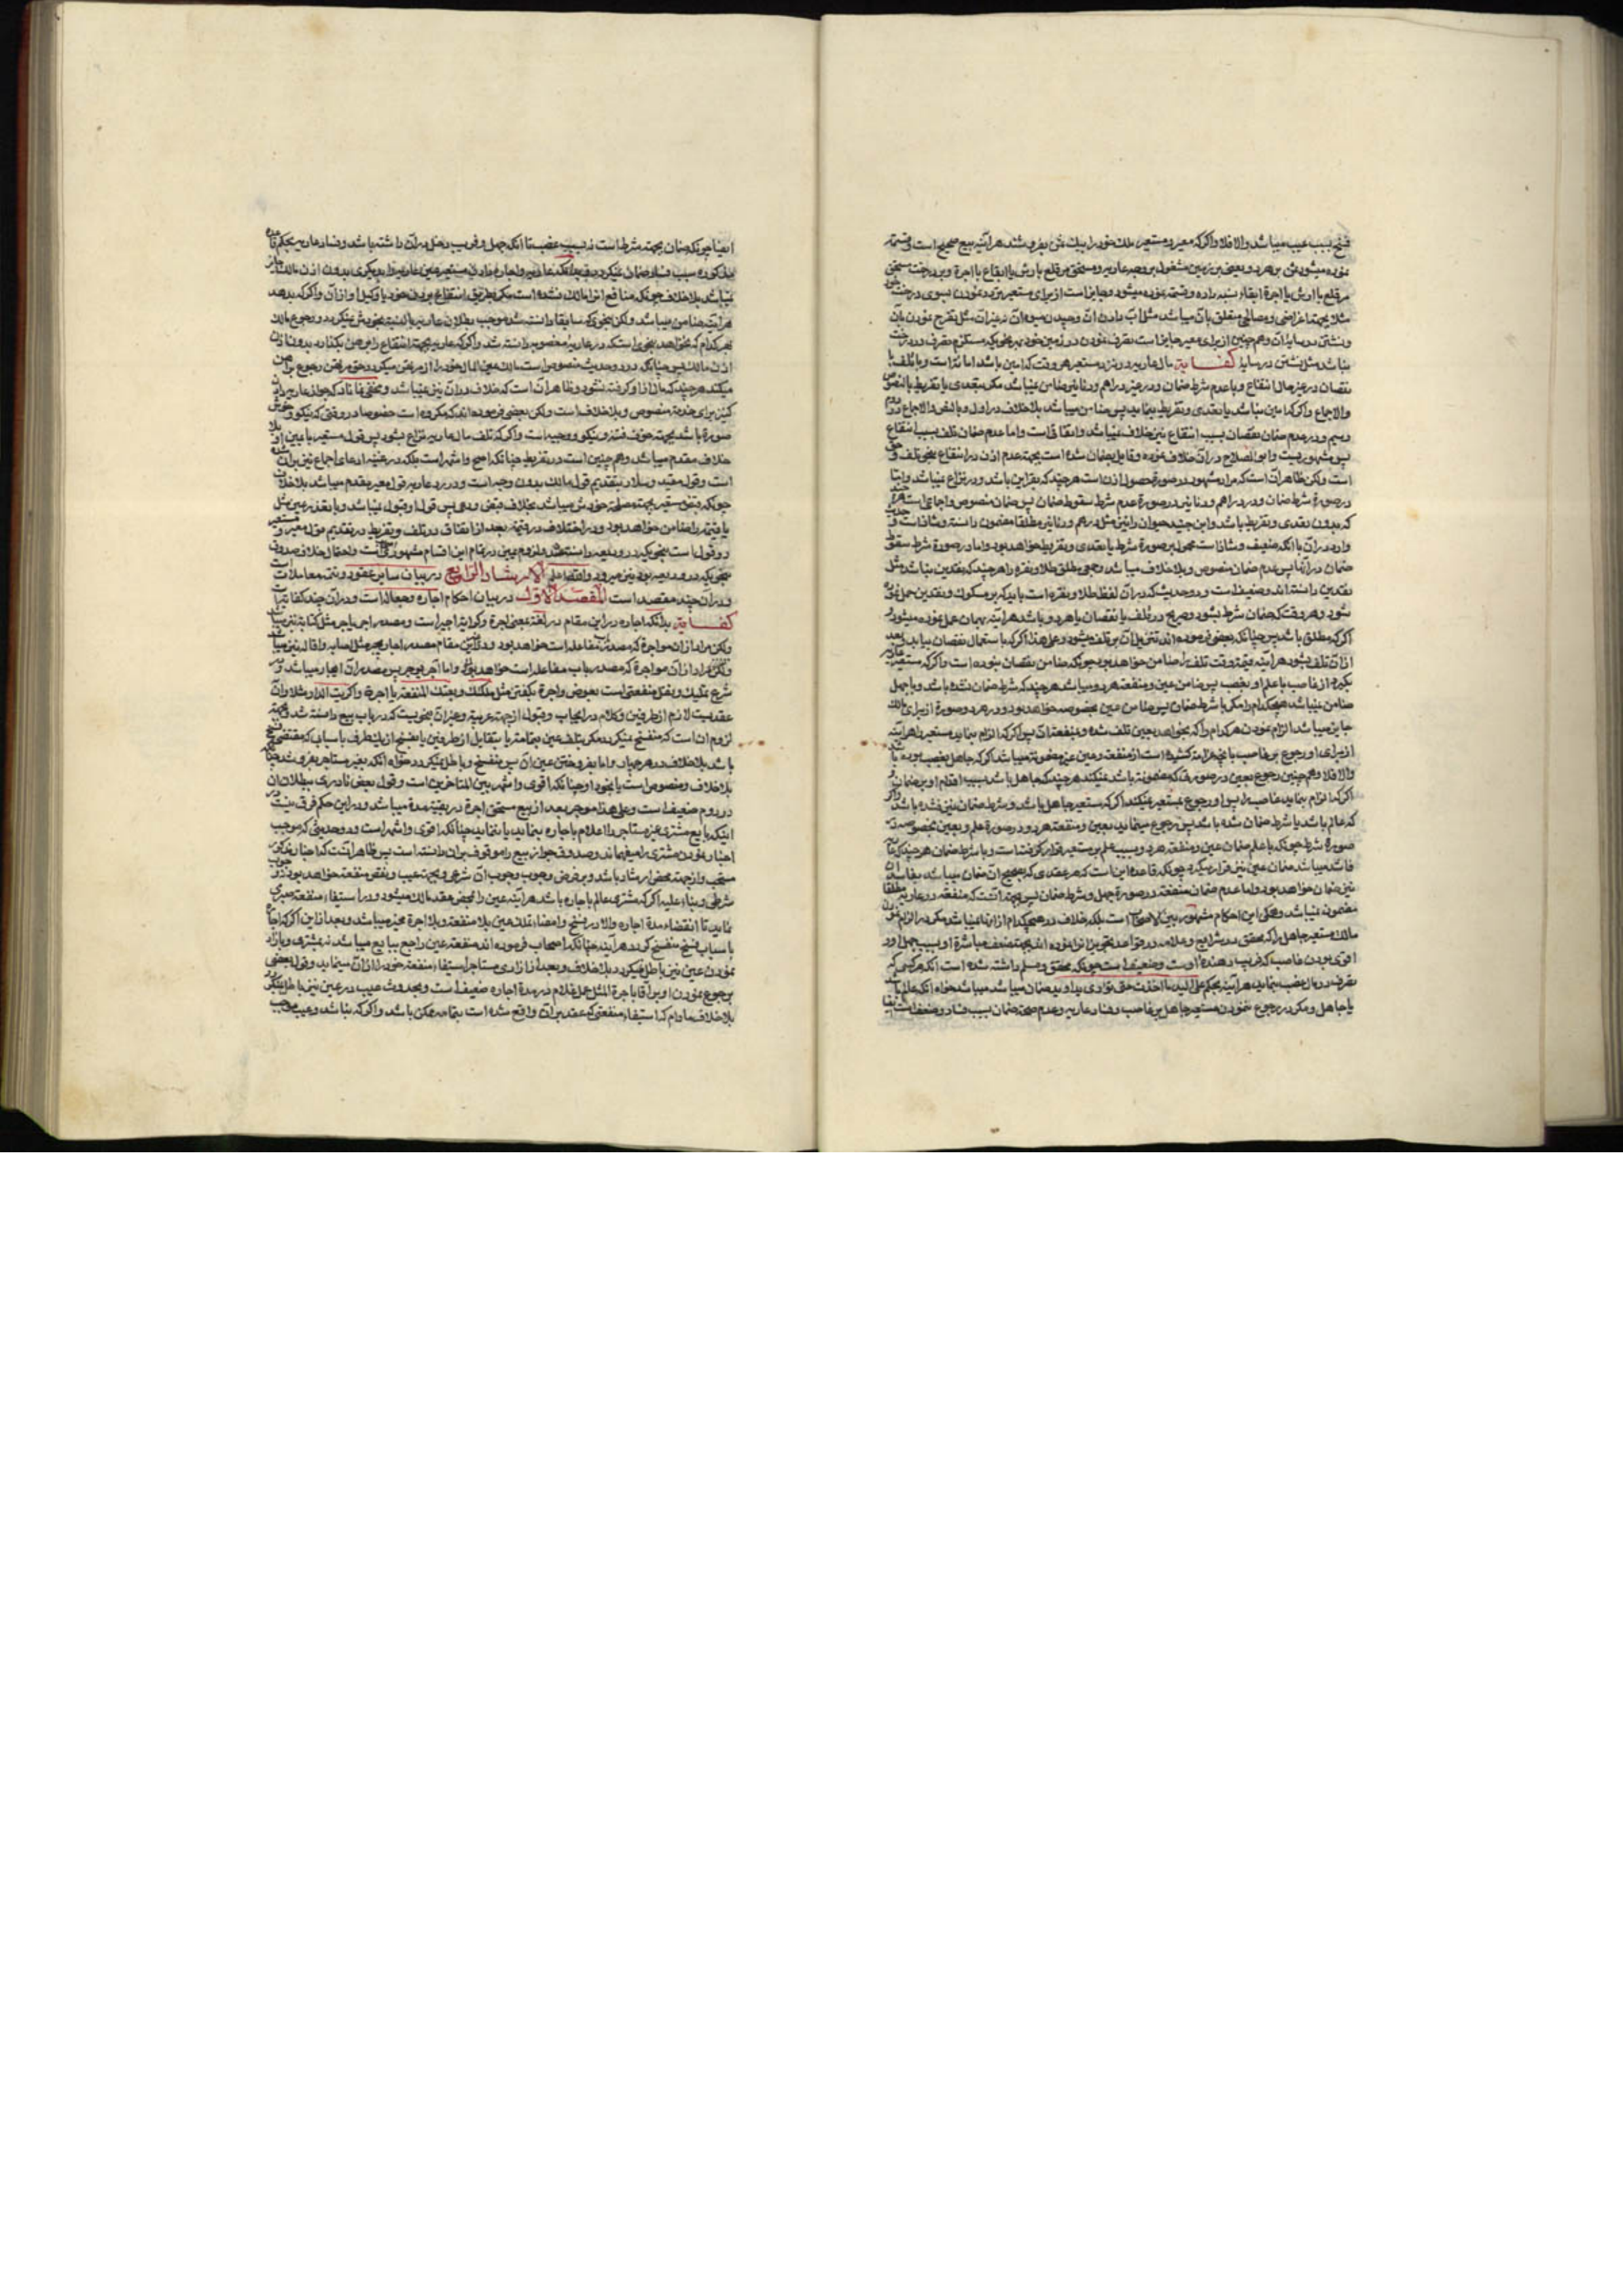 فسخ بسبب عیب میباشد والا فلا واکر که معیر و مستعیر ملک خود را بیک ثمن بفروشند هرآینه بیع صحیح است و قسمة
نموده میشود ثمن بر هر دو یعنی بر زمین مشغول بر وجه عاریه و مستحق بر قلع با ارش یا ابقاع با اجرة و بر درخت مستحق
بر قلع با ارش یا اجرة ابقاء
مثلا بجهة اغراضی و مصالحی متعلق بآن میباشد مثل آب دادن آن و چیدن میوه آن نه غیر آن مثل تفرج نمودن بآن
و نشتن در سایه آن و همچنین از برای معیر جایز است تصرف نمودن در زمین خود
نباشد مثل نشتن در سایه کفایة مال عاریه در نزد مستعیر هر وقت که امین باشد امانة است و با تلف یا
نقصان در غیر حال انتفاع و با عدم شرط ضمان و در غیر دراهم و دنانیر ضامن نمیباشد مکر بتعدی یا تفریط بالنصوص
والاجماع واکر که امین نباشد یا تعدی و تفریط بنماید پس ضامن میباشد بلا خلاف در اول و بالنص والاجماع در دوم
و سیم و در عدم ضمان نقصان بسبب انتفاع نیز خلاف نمیباشد و اتفاقی است و اما عدم ضمان تلف بسبب انتفاع
پس مشهوریست و ابو الصلاح در آن خلاف نموده و قایل بضمان شده است بجهة عدم اذن در انتفاع بنحو تلف
است ولکن ظاهر آن است که مراد مشهور در صورة حصول اذن است هرچند که بقراین باشد و در نزاع نمیباشد و اما
در صورة شرط ضمان و در دراهم و دنانیر در صورة عدم شرط سقوط ضمان پس ضمان منصوص و اجماعی است
که بدون تعدی و تفریط باشد و ابن جنید حیوان را نیز مثل درهم و دنانیر مطلقا مضمون دانسته و شاذ است
وارد در آن با انکه ضعیف و شاذ است محمول بر صورة شرط یا تعدی و تفریط خواهد بود و اما در صورة شرط سقوط
ضمان در آنها پس عدم ضمان منصوص و بلا خلاف میباشد
نقدین دانسته اند و ضعیف است و در حدیثی که در آن لفظ طلا و نقره است باید که بر مسکوک و نقدین حمل
شود و هر وقت که ضمان شرط بشود و صریح در تلف یا نقصان یا هر دو باشد هرآینه بهمان عمل نموده میشود و
اکر که مطلق باشد پس چنانکه بعضی فرموده اند تنزیل آن بر تلف میشود و علی هذا اکر که باستعمال نقصان بیابد و بعد
از آن تلف بشود هرآینه قیمة وقت تلف را ضامن خواهد بود چونکه ضامن نقصان نبوده است واکر که مستعیر
بکیرد از غاصب با علم او بغصب پس ضامن عین و منفعة هر دو میباشد هرچند که شرط ضمان نشده باشد و با جهل
ضامن نمیباشد هیچکدام را مکر با شرط ضمان پس ضامن عین بخصوصه خواهد بود و در هر دو صورة از برای مالک
جایز میباشد الزام نمودن هر کدام را که بخواهد بعین تلف شده و بمنفعة آن پس اکر که الزام بنماید مستعیر را هرآینه
از برای او رجوع بر غاصب
والا فلا و همچنین رجوع بعین در صورتی که مضمونة باشد نمیکند هرچند که جاهل باشد بسبب اقدام او بر ضمان
اکر که الزام بنماید غاصب را پس او رجوع بمستعیر نمیکند اکر که مستعیر جاهل باشد و شرط ضمان نیز نشده باشد
که عالم باشد یا شرط ضمان شده باشد پس رجوع مینماید بعین و منفعة هر دو در صورة علم و بعین بخصوصه در
صورة شرط چونکه با علم ضمان عین و منفعة هر دو بسبب علم بر مستعیر قرار کرفته است و با شرط ضمان هرچند که
فاسد میباشد ضمان عین نیز قرار میکیرد چونکه قاعده این است که هر عقدی که بصحیح آن ضمان میباشد بفاسد آن
نیز ضمان خواهد بود و اما عدم ضمان منفعة در صورة جهل و شرط ضمان پس بجهة آنست که منفعة در عاریه مطلقا
مضمون نمیباشد و همکی این احکام مشهور بین الاصحاب است بلکه خلاف در هیچکدام از آنها نمیباشد مکر در الزام نمودن
مالک مستعیر جاهل را که محقق در شرایع و علامه در قواعد تجویز آنرا ننموده اند بجهة ضعف مباشرة او بسبب جهل او و
اقوی بودن غاصب که فریب دهنده اوست و ضعیف است چونکه محقق و مسلم داشته شده است انکه هر کسی که
تصرف در مال غصب بنماید هرآینه بحکم علی الید ما اخذت حتی تؤدی ید او ید ضمان میباشد خواه انکه عالم باشد
یا جاهل و مکر در رجوع ننمودن مستعیر جاهل بر غاصب و فساد عاریه و عدم صحة ضمان بسبب فساد و ضعیف است
ایضا چونکه ضمان بجهة شرط است نه بسبب غصب تا انکه جهل و فریب دخل در آن داشته باشد و فساد عاریه بحکم قاعده
مذکوره سبب فساد ضمان نمیکردد
نمیباشد بلا خلاف چونکه منافع آنرا مالک نشده است مکر بطریق انتفاع بردن خود یا وکیل او از آن واکر که بدهد
هرآینه ضامن میباشد ولکن بنحوی که سابقا دانسته شد موجب بطلان عاریه بالنسبة بخودش نمیکردد و رجوع مالک
بهر کدام که بخواهد بنحوی است که در عاریه مغصوبه دانسته شد واکر که عاریه بجهة انتفاع را برهن بکذارد بدون اذن
اذن مالک پس چنانکه در دو حدیث منصوص است مالک عین المال خود را از مرتهن میکیرد و حق مرتهن رجوع براهن
میکند هرچند که مال از او کرفته نشود و ظاهر آن است که خلاف در آن نیز نمیباشد و مخفی نماناد که جواز عاریه دادن
کنیز برای خدمة منصوص و بلا خلاف است ولکن بعضی فرموده اند که مکروه است خصوصا در وقتی که نیکو و خوش
صورة باشد بجهة خوف فتنه و نیکو و وجیه است واکر که تلف مال عاریه نزاع بشود پس قول مستعیر با یمین او بلا
خلاف مقدم میباشد و همچنین است در تفریط چنانکه اصح و اشهر است بلکه در غنیه ادعای اجماع نیز بر آن شده
است و قول مفید و سلار بتقدیم قول مالک بدون وجه است و در رد عاریه قول معیر مقدم میباشد بلا خلاف
چونکه قبض مستعیر بجهة مصلحة خودش میباشد بخلاف قبض ودعی پس قول او قبول نمیباشد و با تعذر عین مثل
یا قیمة را ضامن خواهد بود و در اختلاف در قیمة بعد از اتفاق در تلف و تفریط در تقدیم قول معیر و مستعیر
دو قول است بنحویکه در ودیعه دانسته شد و لزوم یمین در تمام این اقسام مشهور است و احتمال خلاف
بنحویکه در ودیعه بود نیز میرود و اقتضا علیه الارشاد الرابع در بیان سایر عقود و تتمه معاملات است
و در آن چند مقصد است المقصد الاول در بیان احکام اجاره و جعاله است و در آن چند کفایة
کفایة بدانکه اجاره در این مقام در لغة بمعنی اجرة و کرایه اجیر است و مصدر اجر یاجر مثل کتابة نیز
ولکن مراد از آن مواجرة که مصدر مفاعله است خواهد بود
ولکن مراد از آن مواجرة که مصدر باب مفاعله است خواهد بود و اما آجر یوجر پس مصدر آن ایجار میباشد و در
شرع تملیک و نقل منفعتی است بعوض و اجرة بکفتن مثل ملکتک و بعتک المنفعة یا اجرة واکریت الدار مثلا و آن
عقدیست لازم از طرفین و کلام در ایجاب و قبول از جهة عربیة و غیر آن بنحویست که در باب بیع دانسته شد و
لزوم آن است که منفسخ نمیکردد مکر بتلف عین بتمامة یا بتقایل از طرفین یا بفسخ از یک طرف باسبابی که مقتضی فسخ
باشد بلا خلاف در هر چهار و اما بفروختن عین آن پس منفسخ و باطل نمیکردد خواه انکه بغیر مستاجر بفروشد چنانکه
بلا خلاف و منصوص است یا بخود او چنانکه اقوی و اشهر بین المتاخرین است و قول بعض نادری ببطلان آن
در دوم ضعیف است و علی هذا موجر بعد از بیع مستحق اجرة در بقیه مدة میباشد و در این حکم فرقی نیست
اینکه بایع مشتری غیر مستاجر را اعلام باجاره بنماید یا ننماید چنانکه اقوی و اشهر است و در حدیثی که موجب
اخبار نمودن مشتری را میفهماند و صدوق جواز بیع را موقوف بر آن دانسته است پس ظاهر آنست که اخبار مذکور
مستحب و از جهة محض ارشاد باشد و بر فرض وجوب وجوب آن شرعی و بجهة عیب و نقص منفعة خواهد بود نه وجوب
شرطی و بناء علیه اکر که مشتری عالم باجاره باشد هرآینه عین را بمحض عقد مالک میشود و در استیفاء منفعة صبر
بنماید تا انقضاء مدة اجاره والا در فسخ و امضاء تملک عین بلا منفعة و بلا اجرة مخیر میباشد و بعد از این اکر که اجاره
باسباب فسخ منفسخ کردد هرآینه چنانکه اصحاب فرموده اند منفعة عین راجع ببایع میباشد نه بمشتری و باز آزاد
نمودن عین نیز باطل نمیکردد بلا خلاف و بعد از آزادی مستاجر استیفاء منفعة خود را از آن مینماید و قول بعضی
برجوع نمودن او بر آقا باجرة المثل عمل غلام در مدة اجاره ضعیف است و بحدوث عیب در عین نیز باطل نمیکردد
بلا خلاف مادام که استیفاء منفعتی که عقد بر آن واقع شده است بتمامه ممکن باشد واکر که نباشد و عیب موجب